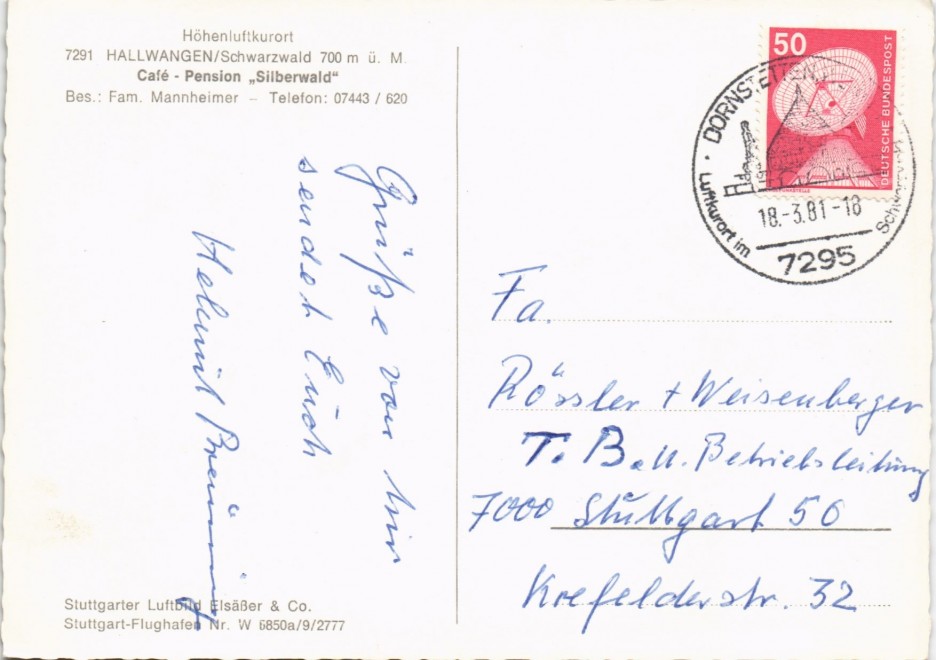 Höhenluftkurort
7291 HALLWANGEN/Schwarzwald 700 m ü. M.
Café - Pension „Silberwald"
Bes.: Fam. Mannheimer – Telefon: 07443 / 620
Grüße von hier
sendet Euch
Helmut Breüning
Stuttgarter Luftbild Elsäßer & Co.
Stuttgart-Flughafen Nr. W 6850a/9/2777
50
DEUTSCHE BUNDESPOST
DORNSTETTEN
18.-3.81-18
Luftkurort im Schwarzwald
7295
Fa.
Rössler + Weisenberger
T. B. u. Betriebsleitung
7000 Stuttgart 50
Krefelderstr. 32